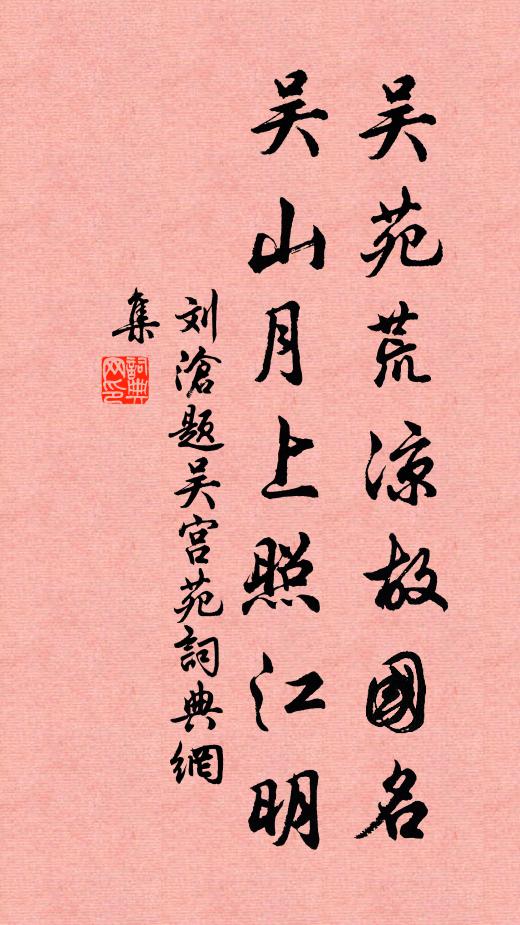 吴苑荒凉故國名
吴山月上照江明
刘滄题吴宫苑詞典網
集
詞典
网印